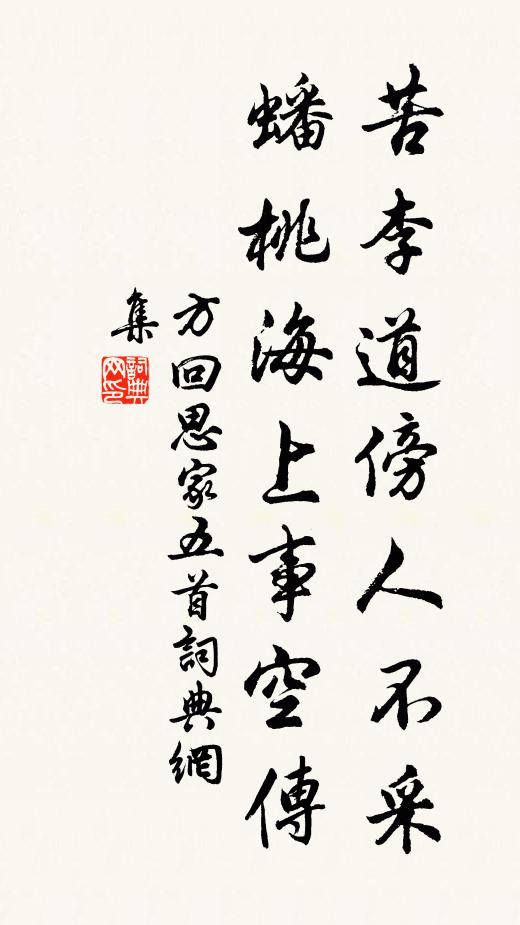 苦李道傍人不采
蟠桃海上事空傳
方回思家五首詞典網
集
詞典网印